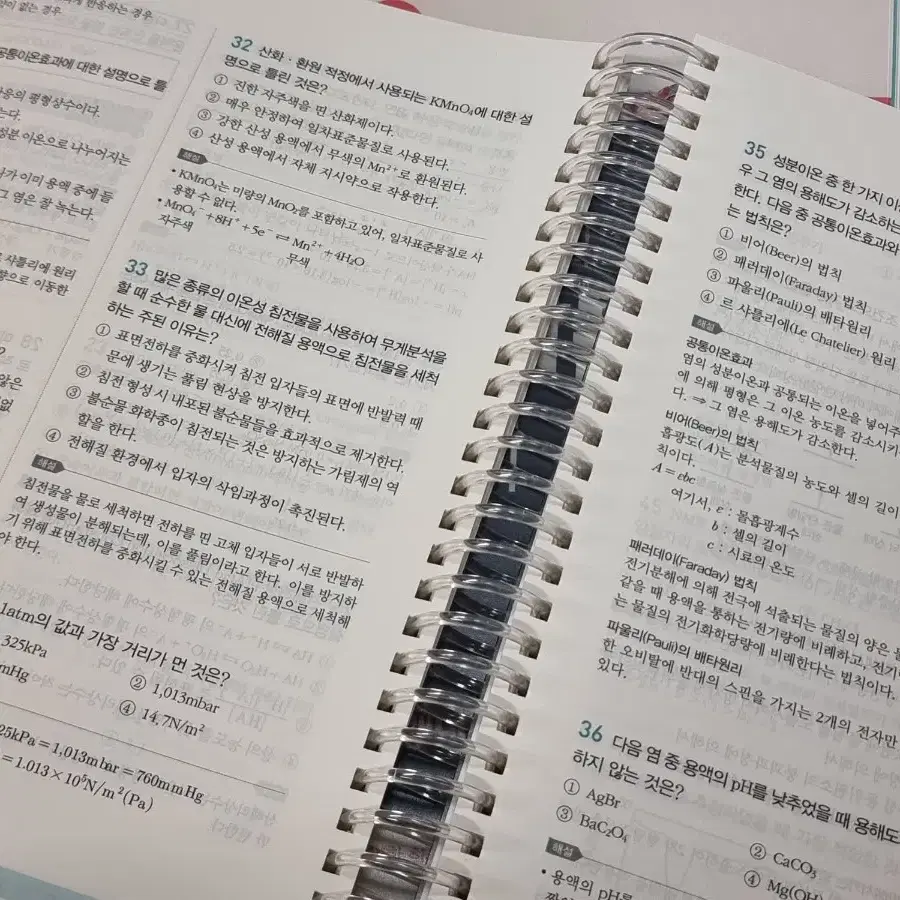 반응하는 경우
많이 없는 경우
공통이온효과에 대한 설명으로 틀
반응의 평형상수이다.
성분 이온으로 나누어지는
가 이미 용액 중에 들
그 염은 잘 녹는다.
르 샤틀리에 원리
향으로 이동한
않은
없
32 산화·환원 적정에서 사용되는 KMnO₄에 대한 설
명으로 틀린 것은?
① 진한 자주색을 띤 산화제이다.
② 매우 안정하여 일차표준물질로 사용된다.
③ 강한 산성 용액에서 무색의 Mn²⁺로 환원된다.
④ 산성 용액에서 자체 지시약으로 작용한다.
해설
• KMnO₄는 미량의 MnO₂를 포함하고 있어, 일차표준물질로 사
용할 수 없다.
• MnO₄⁻+8H⁺+5e⁻ ⇌ Mn²⁺+4H₂O
자주색 무색
33 많은 종류의 이온성 침전물을 사용하여 무게분석을
할 때 순수한 물 대신에 전해질 용액으로 침전물을 세척
하는 주된 이유는?
① 표면전하를 중화시켜 침전 입자들의 표면에 반발력 때
문에 생기는 풀림 현상을 방지한다.
② 침전 형성 시 내포된 불순물들을 효과적으로 제거한다.
③ 불순물 화학종이 침전되는 것은 방지하는 가림제의 역
할을 한다.
④ 전해질 환경에서 입자의 삭임과정이 촉진된다.
해설
침전물을 물로 세척하면 전하를 띤 고체 입자들이 서로 반발하
여 생성물이 분해되는데, 이를 풀림이라고 한다. 이를 방지하
기 위해 표면전하를 중화시킬 수 있는 전해질 용액으로 세척해
야 한다.
1atm의 값과 가장 거리가 먼 것은?
325kPa
② 1,013mbar
mHg
④ 14.7N/m²
25kPa=1,013mbar=760mmHg
=1.013×10⁵N/m²(Pa)
35 성분이온 중 한 가지 이
우 그 염의 용해도가 감소하는
한다. 다음 중 공통이온효과와
는 법칙은?
① 비어(Beer)의 법칙
② 패러데이(Faraday) 법칙
③ 파울리(Pauli)의 배타원리
④ 르 샤틀리에(Le Chatelier) 원리
해설
공통이온효과
염의 성분이온과 공통되는 이온을 넣어주
에 의해 평형은 그 이온 농도를 감소시키
다. ⇒ 그 염은 용해도가 감소한다.
비어(Beer)의 법칙
흡광도(A)는 분석물질의 농도와 셀의 길이
칙이다.
A=εbc
여기서, ε : 몰흡광계수
b : 셀의 길이
c : 시료의 온도
패러데이(Faraday) 법칙
전기분해에 의해 전극에 석출되는 물질의 양은
같을 때 용액을 통하는 전기량에 비례하고, 전기
는 물질의 전기화학당량에 비례한다는 법칙이다.
파울리(Pauli)의 배타원리
한 오비탈에 반대의 스핀을 가지는 2개의 전자만
있다.
36 다음 염 중 용액의 pH를 낮추었을 때 용해도
하지 않는 것은?
① AgBr
② CaCO₃
③ BaC₂O₄
④ Mg(OH)
해설
• 용액의 pH를